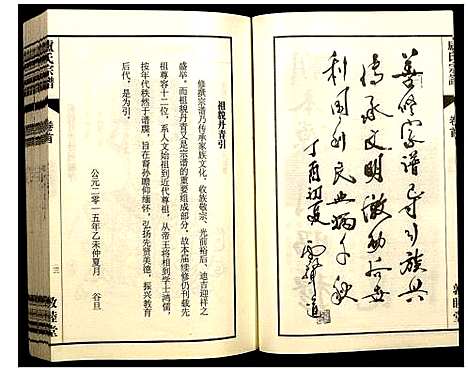 善修宗谱
族兴
传承文明激励后世
利国利民典范千秋
丁酉初夏
卷首
敦睦堂
祖貌丹青引
修撰宗谱乃传承家族文化，收族敬宗、光前裕后、迪吉迎祥之
盛举。而祖貌丹青又是宗谱的重要组成部分，故本届续修仍刊载先
祖尊容十二位，系人文始祖到近代尊祖，从帝王将相到学士鸿儒，
按年代秩然于谱牒，旨在裔孙瞻仰缅怀，弘扬先贤美德，振兴教育
后代。是为引。
公元二零一五年乙未仲夏月　谷旦
卢氏宗谱
卷首
三
敦睦堂